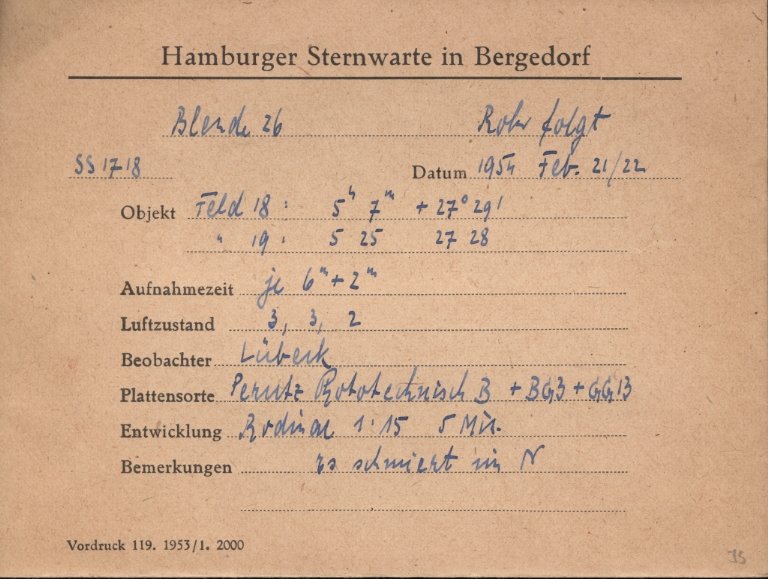 Hamburger Sternwarte in Bergedorf
Blende 26 Rohr folgt
SS 1718 Datum 1954 Feb. 21/22
Objekt Feld 18 : 5ʰ 7ᵐ + 27° 29'
" 19 : 5 25 27 28
Aufnahmezeit je 6ᵐ + 2ᵐ
Luftzustand 3, 3, 2
Beobachter Lübeck
Plattensorte Perutz Phototechnisch B + BG3 + GG13
Entwicklung Rodinal 1:15 5 Min.
Bemerkungen Es schmiert im N
Vordruck 119. 1953/1. 2000